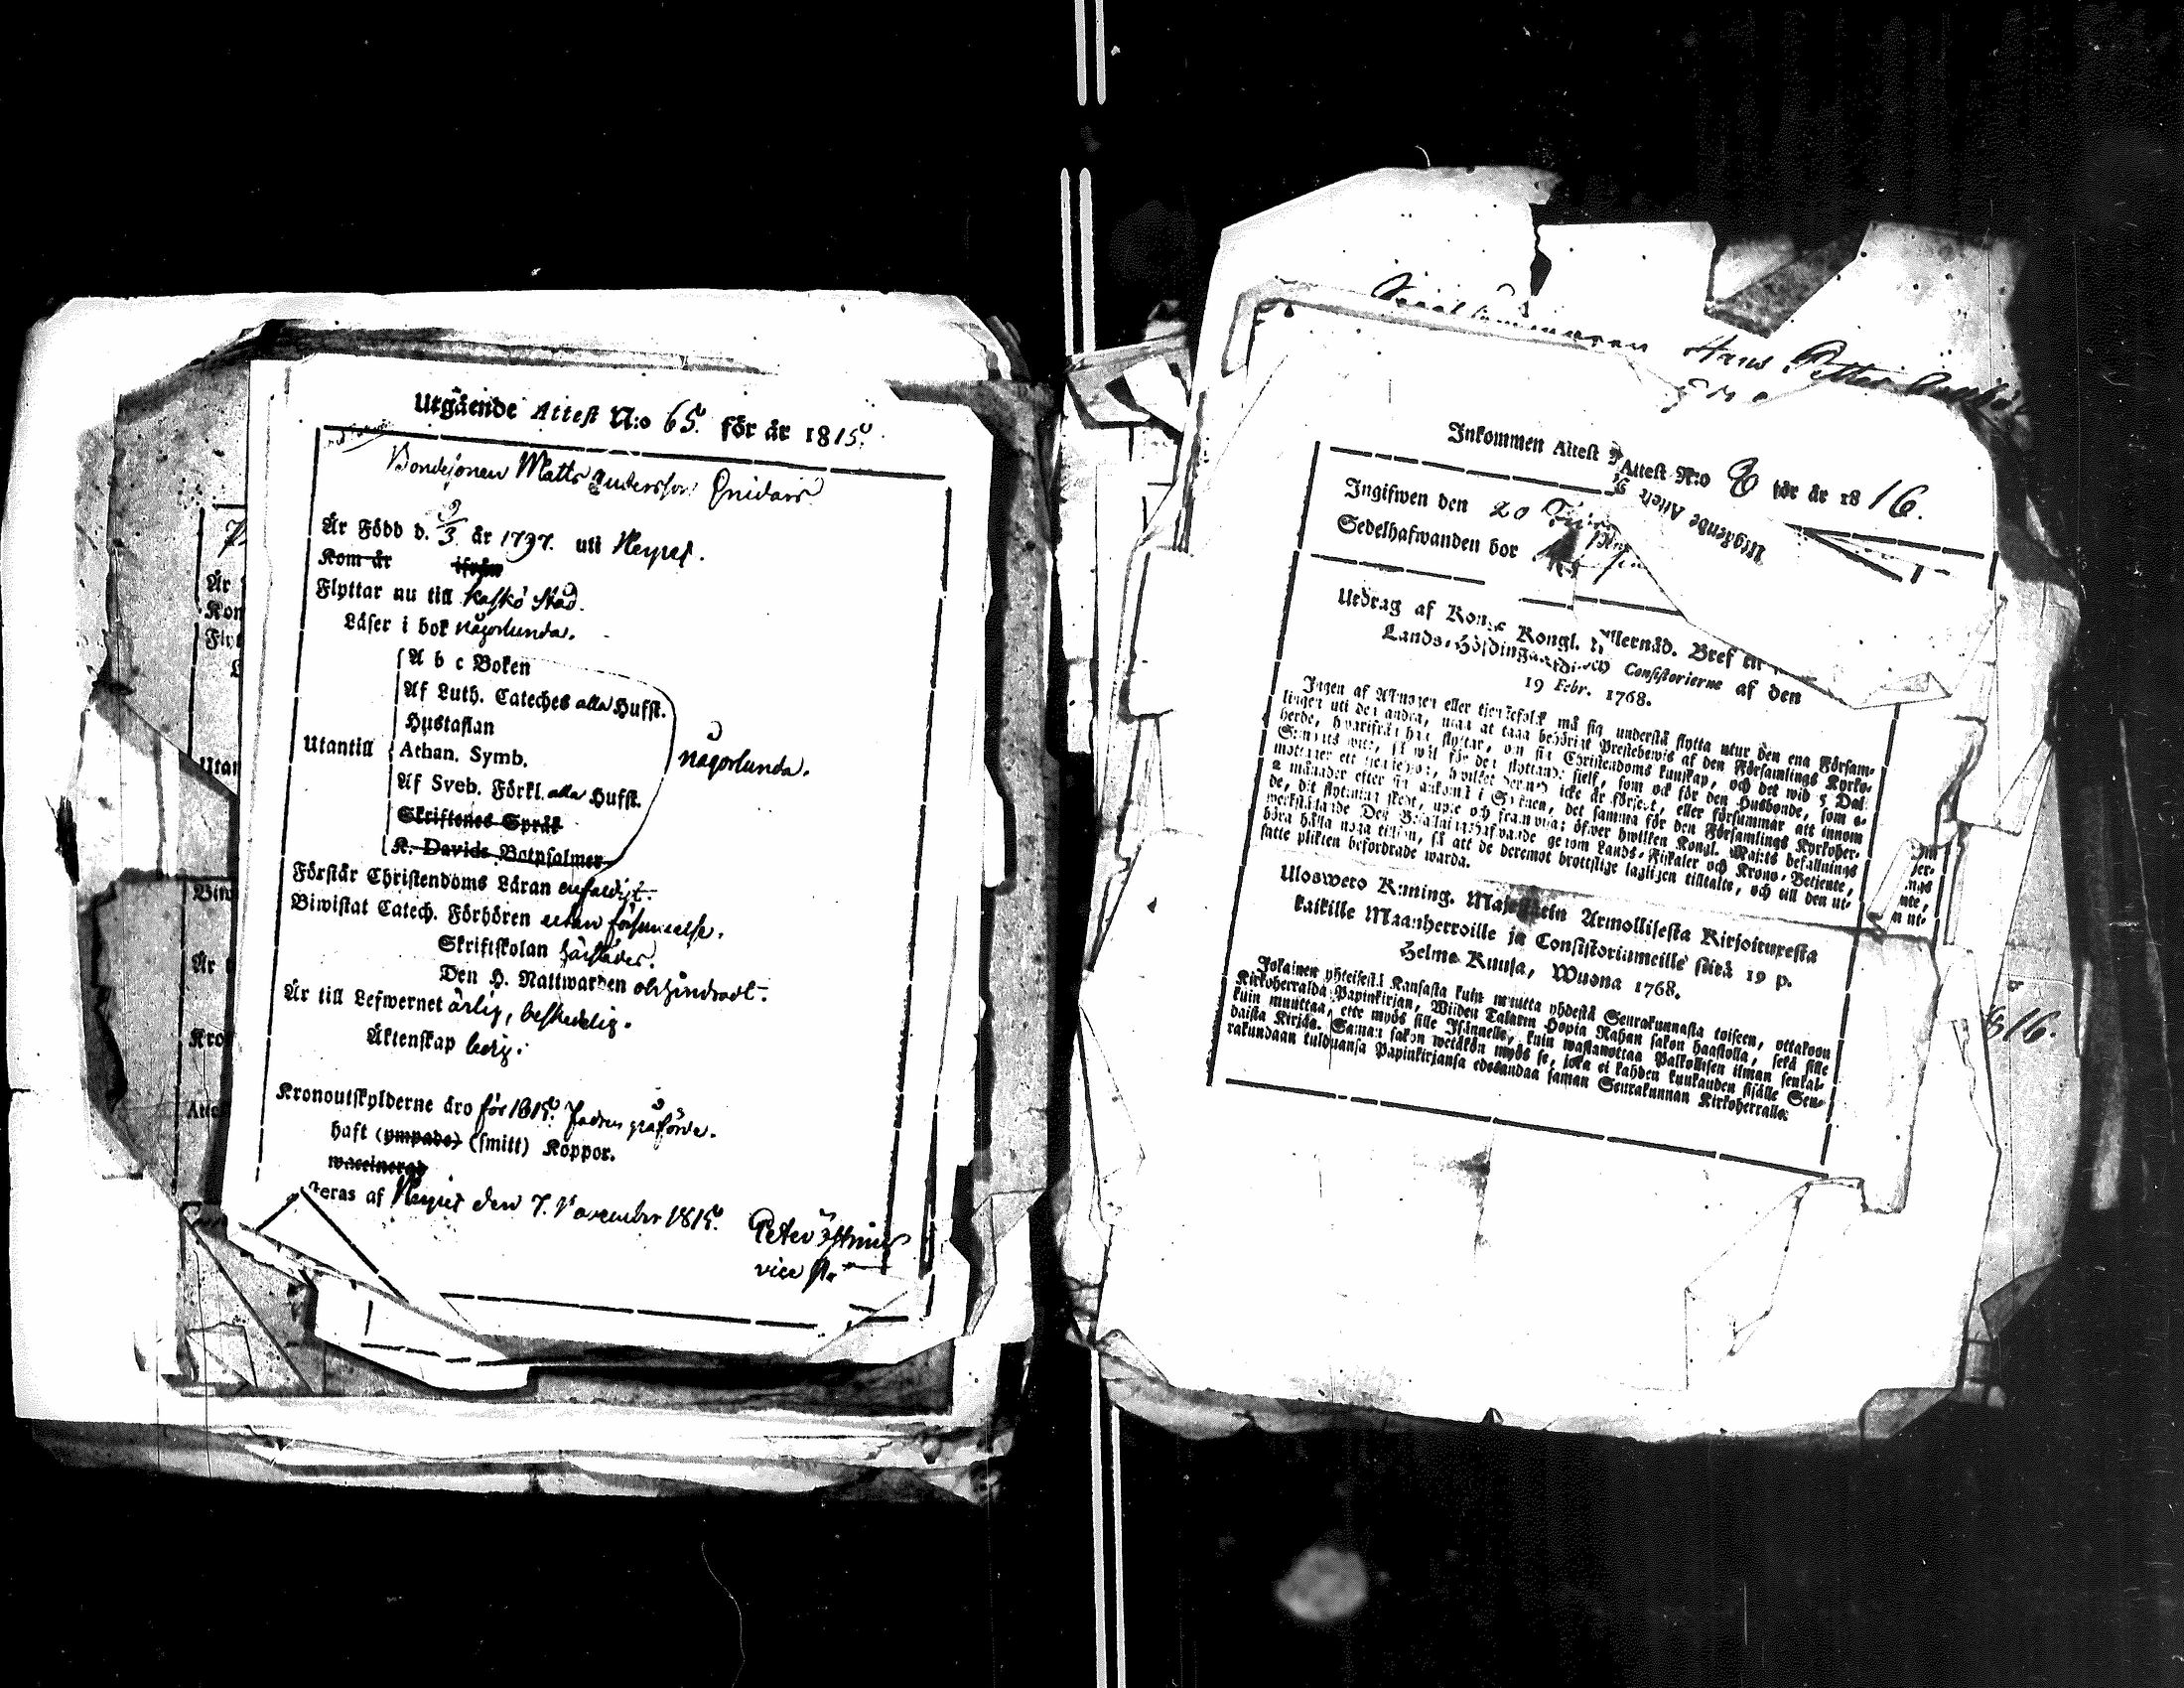 Utgående Attest N:o 65. för år 1815.
Bondesonen Matts Andersson
Är Född d. 9/3 år 1797. uti Nerpes.
Kom år ifrån
Flyttar nu till Kaskö Stad.
Läser i bok någorlunda.
A b c Boken
Af Luth. Cateches alla Hufst.
Hustaflan
Utantill Athan. Symb. någorlunda.
Af Sveb. Förkl. alla Hufst.
Skriftenes Språk
K. Davids Botpsalmer
Förstår Christendoms Läran enfaldigt.
Biwistat Catech. Förhören utan försummelse.
Skriftskolan härstädes.
Den H. Nattwarden ohindradt.
Är till Lefwernet ärlig, beskedelig.
Äktenskap ledig.
Kronoutskylderne äro för 1815 påförde.
haft (ympade) (smitt) Koppor.
waccinerad
teras af Nerpes den 7. November 1815.
Peter
vice
Hans Petter
Inkommen Attest Attest N:o 8 för år 1816.
Utgående Attest
Ingifwen den 20
Sedelhafwanden bor
Utdrag af Kongl. Bref til
Lands-Höfdingarne Consistorierne af den
19 Febr. 1768.
Ingen af Allmogen eller tienstefolck må sig understå flytta utur den ena Försam-
lingen uti den andra, utan at taga behörigt Prestebewis af den Församlings Kyrko-
herde, hwarifrån han flyttar, om sin Christendoms kunskap, och det wid 5 Dal.
Silf:mts wite, så wäl för den flyttande sielf, som ock för den Husbonde, som e-
mottager ett tjenstehjon, hwilket dermed icke är försedt, eller försummar att innom
2 månader efter sin ankomst i Socknen, det samma för den Församlings Kyrkoher-
de, dit flyttning skedt, upte och framwisa; öfwer hwilken Kongl. Maj:ts befallnings
werkställande Des Befallningshafwande genom Lands-Fiskaler och Krono-Betjente,
böra hålla noga tillsyn, så att de deremot brottslige lagligen tilltalte, och till den ut-
satte plikten befordrade warda.
Uloswero Kuning. Majestätin Armollisesta Kirjoituxesta
kaikille Maanherroille ja Consistoriumeille siitä 19 p.
Helme Kuusa, Wuonna 1768.
Jokainen yhteisestä Kansasta kuin muutta yhdestä Seurakunnasta toiseen, ottakoon
Kirkoherralda Papinkirjan, Wiiden Talarin Hopia Rahan sakon haastolla, sekä sille
kuin muuttaa, että myös sille Isännelle, kuin wastanottaa Palkollisen ilman senkal-
daista Kirjaa. Saman sakon wetäkön myös se, joka ei kahden kuukauden sisälle Seu-
rakundaan tulduansa Papinkirjansa edesandaa saman Seurakunnan Kirkoherralle.
816.